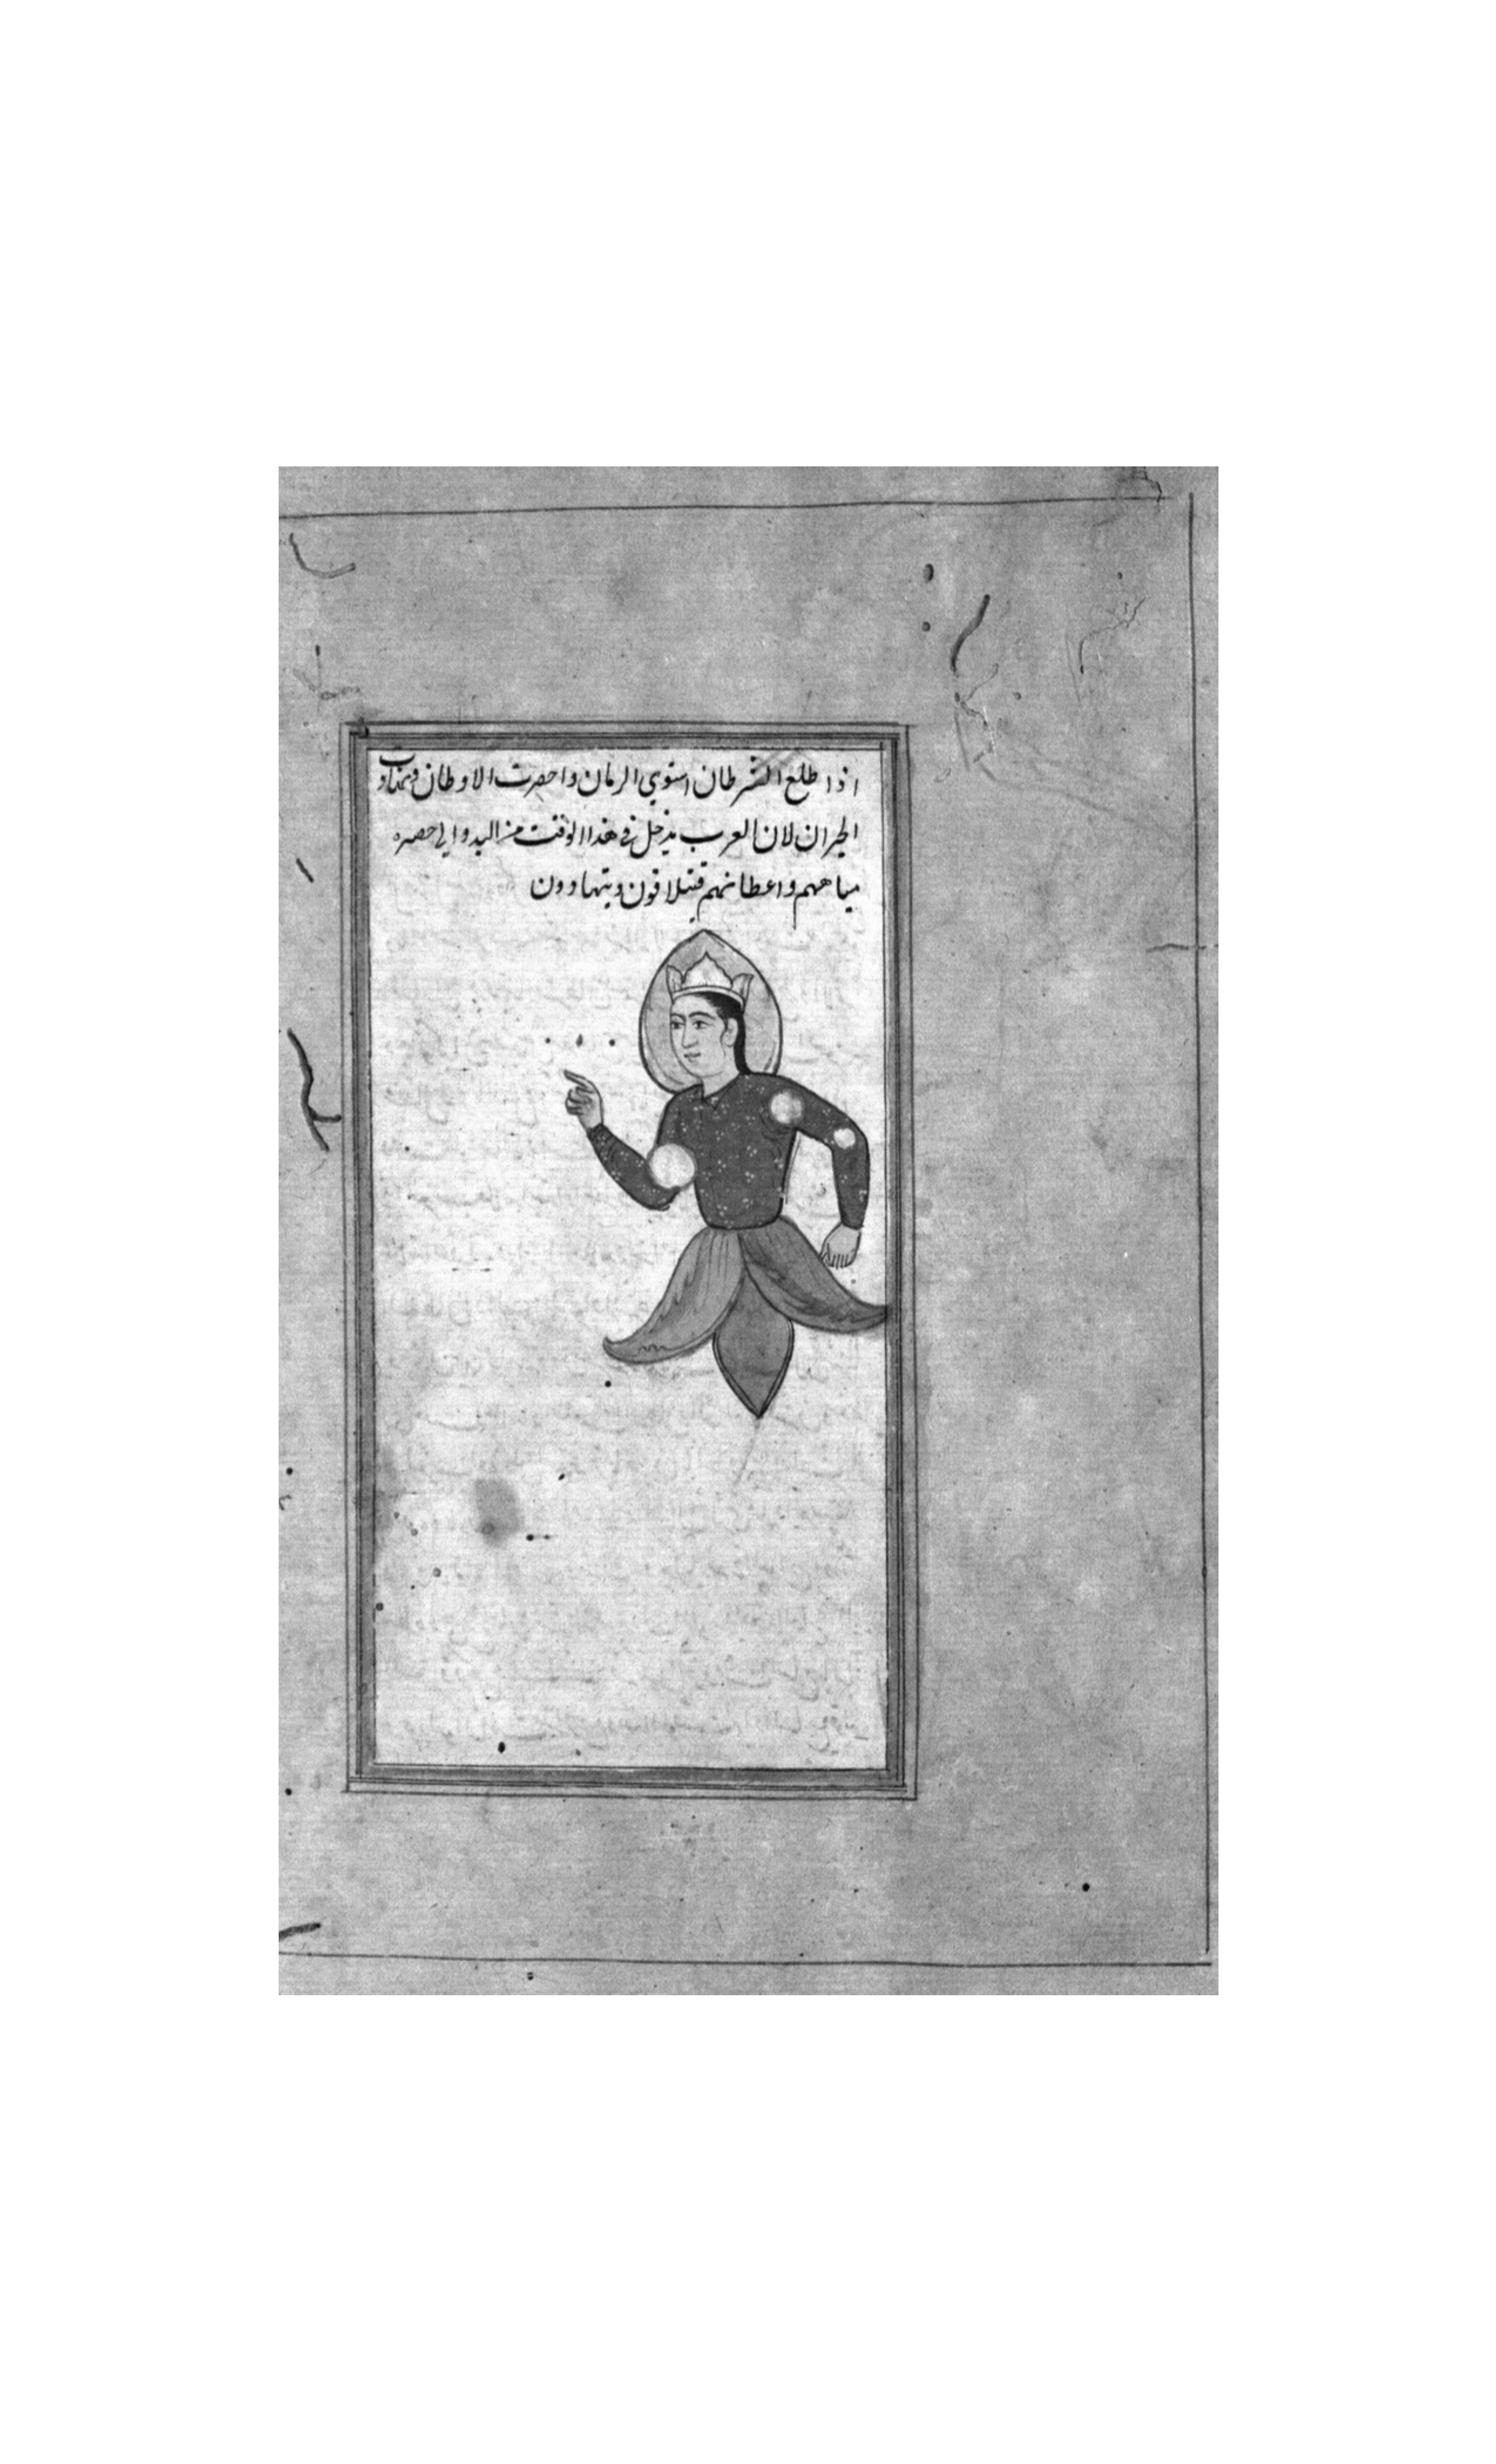 اذا طلع الشرطان استوي الزمان واحضرت الاوطان وتهادت
الجيران لان العرب يدخل في هذا الوقت من البدو الي حصره
مياههم واعطانهم فيتلاقون ويتهادون